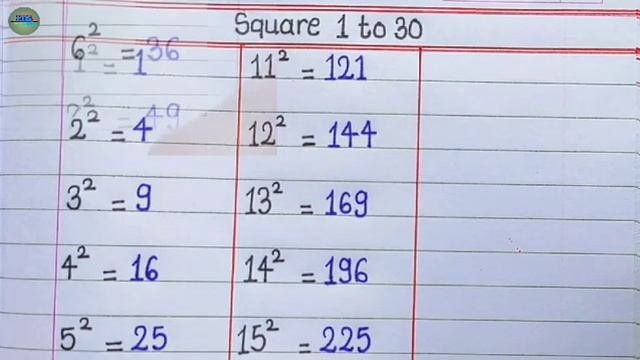 Square 1 to 30
6² = 36
1² = 1
11² = 121
7² = 49
2² = 4
12² = 144
3² = 9
13² = 169
4² = 16
14² = 196
5² = 25
15² = 225